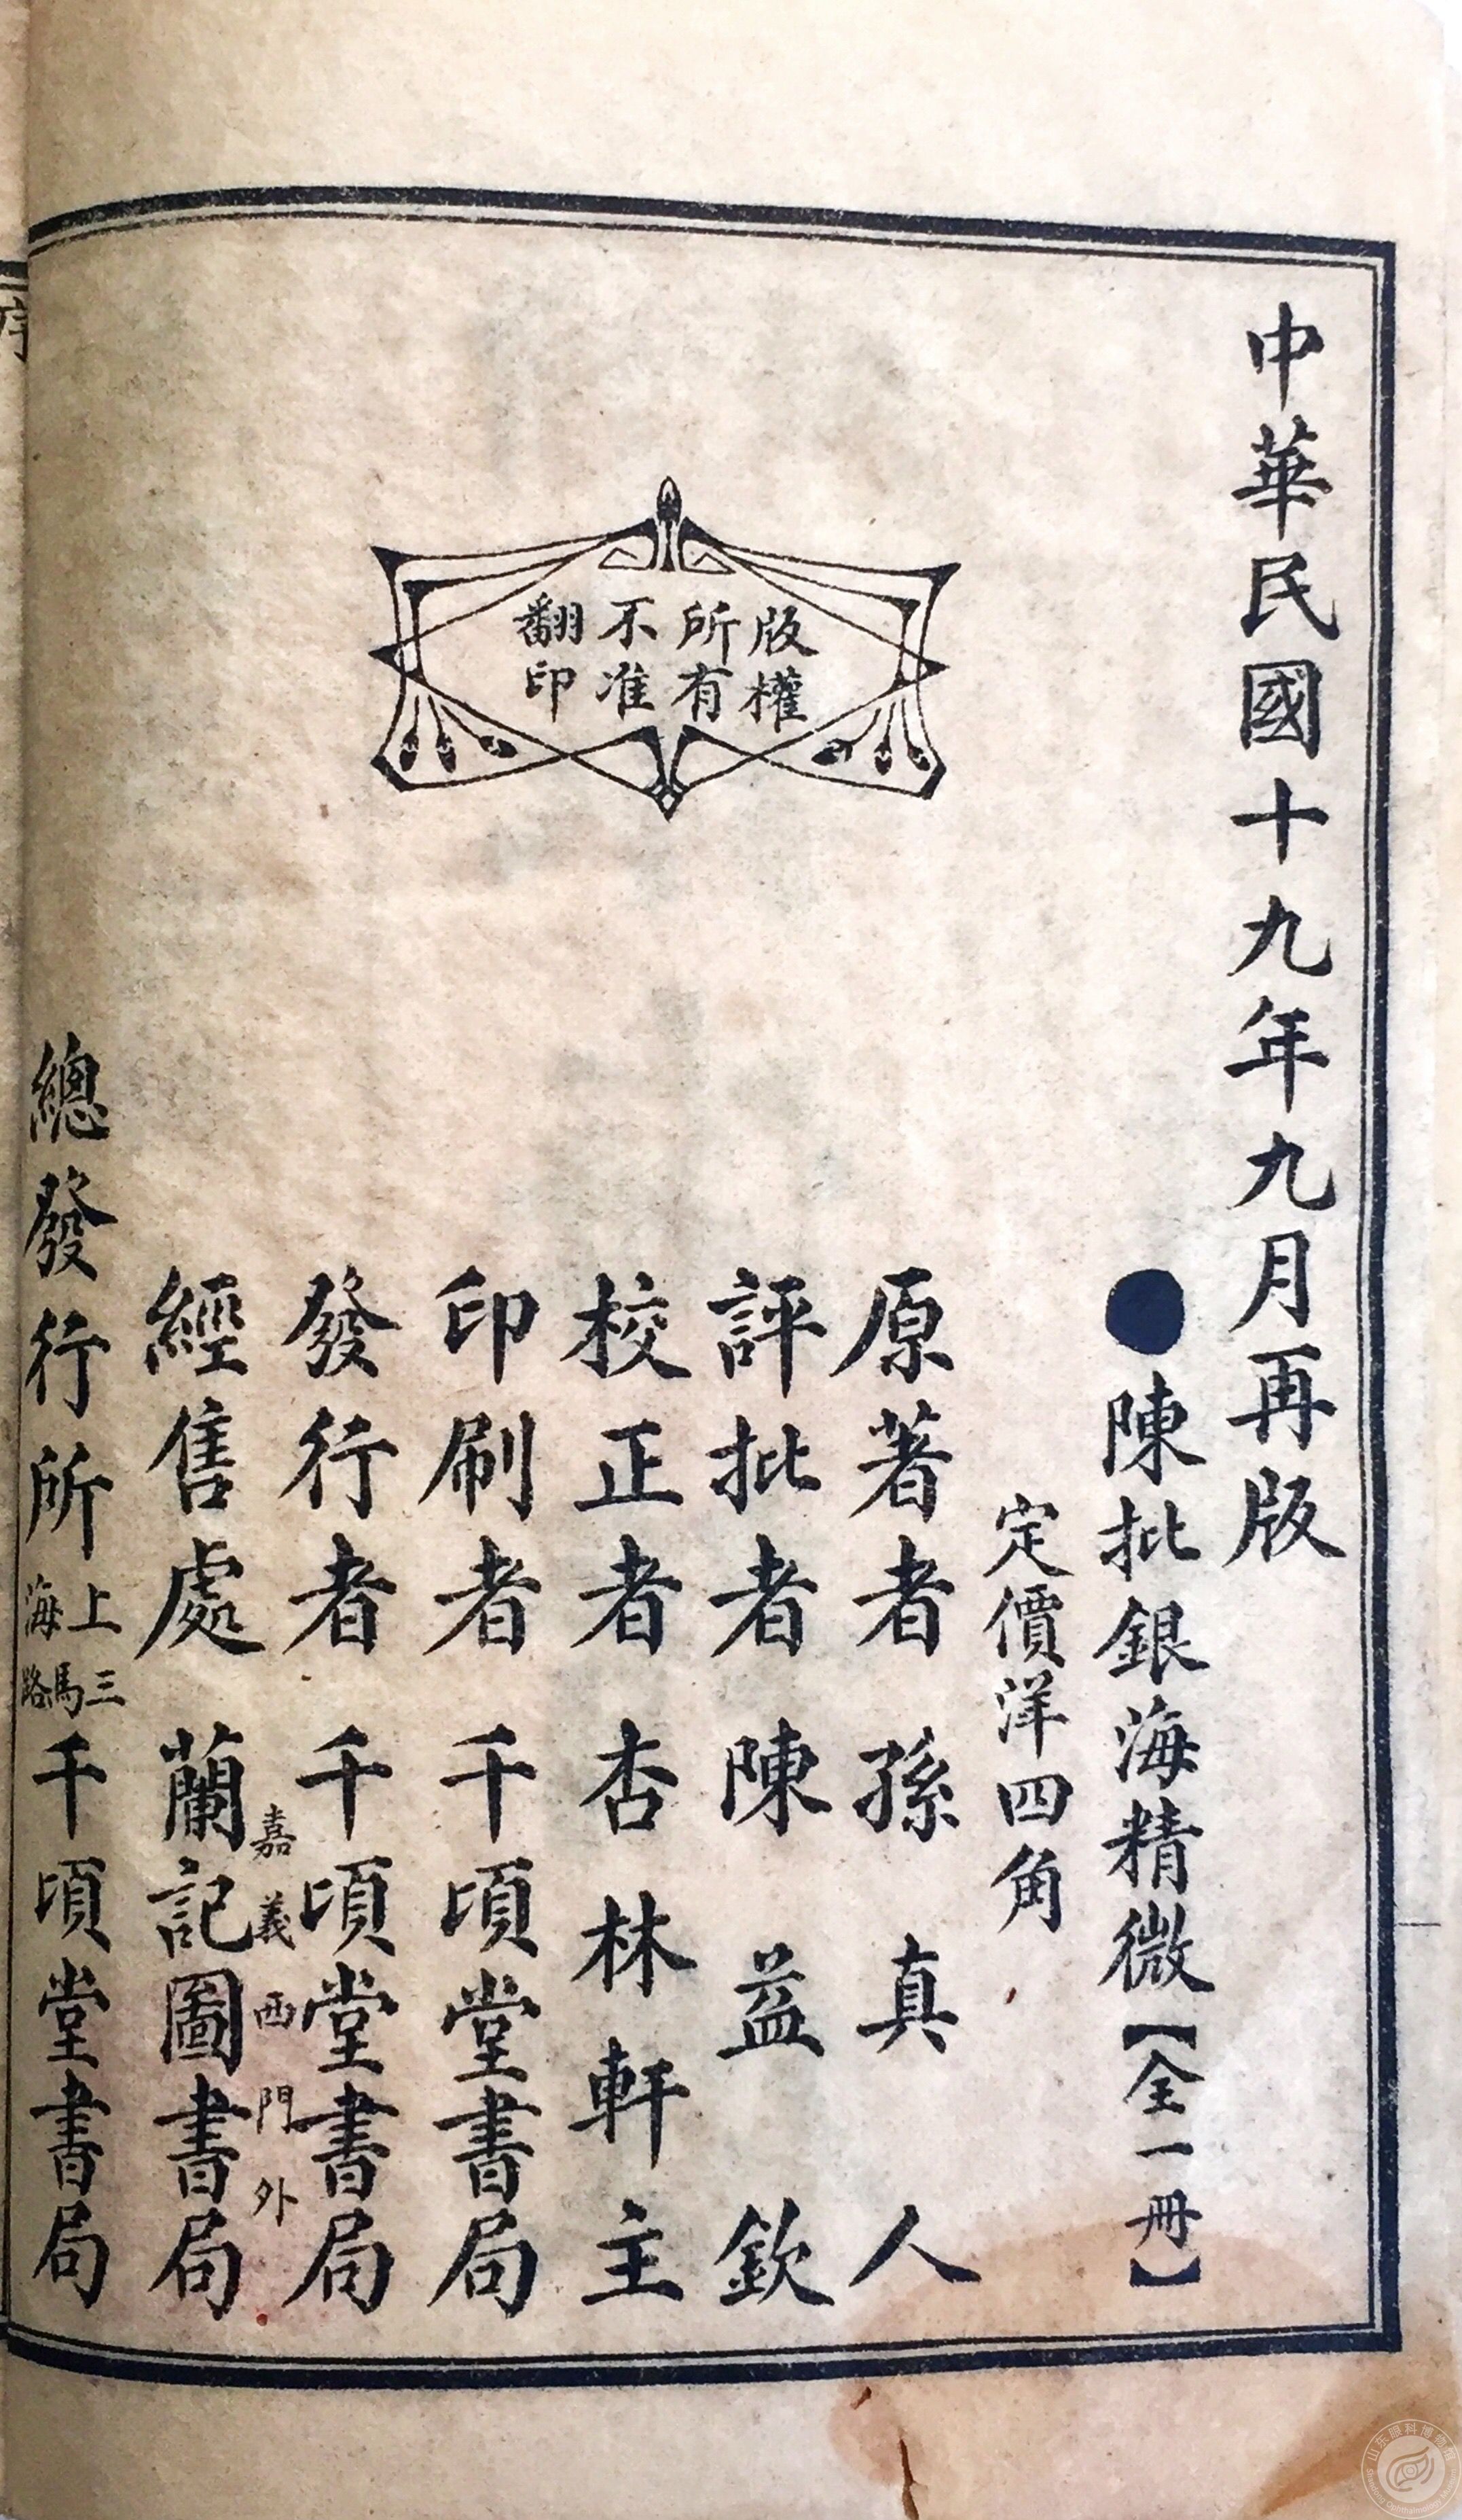 中華民國十九年九月再版
●陳批銀海精微【全一冊】
定價洋四角
版權
所有
不准
翻印
原著者 孫真人
評批者 陳益欽
校正者 杏林軒主
印刷者 千頃堂書局
發行者 千頃堂書局
經售處 嘉義西門外 蘭記圖書局
總發行所 上海三馬路 千頃堂書局
序
山东眼科博物馆